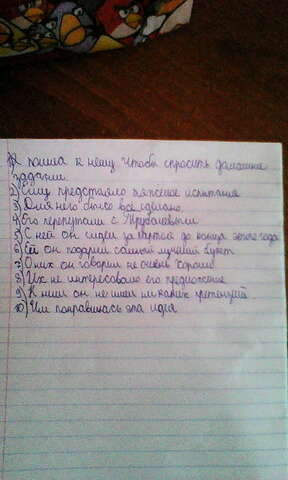 1) Я пошла к нему чтобы спросить домашние
задании.
2) Ему предстояло тяжёлое испытания
3) Для него было всё сделано
4) Его перепутали с
5) С ней он сидел за партой до конца этого года
6) Ей он подарил самый лучший букет
7) О них он говорил не очень хорошо
8) Их не интересовало его предложение
9) К ним он не имел никаких претензий
10) Им понравилась эта идея